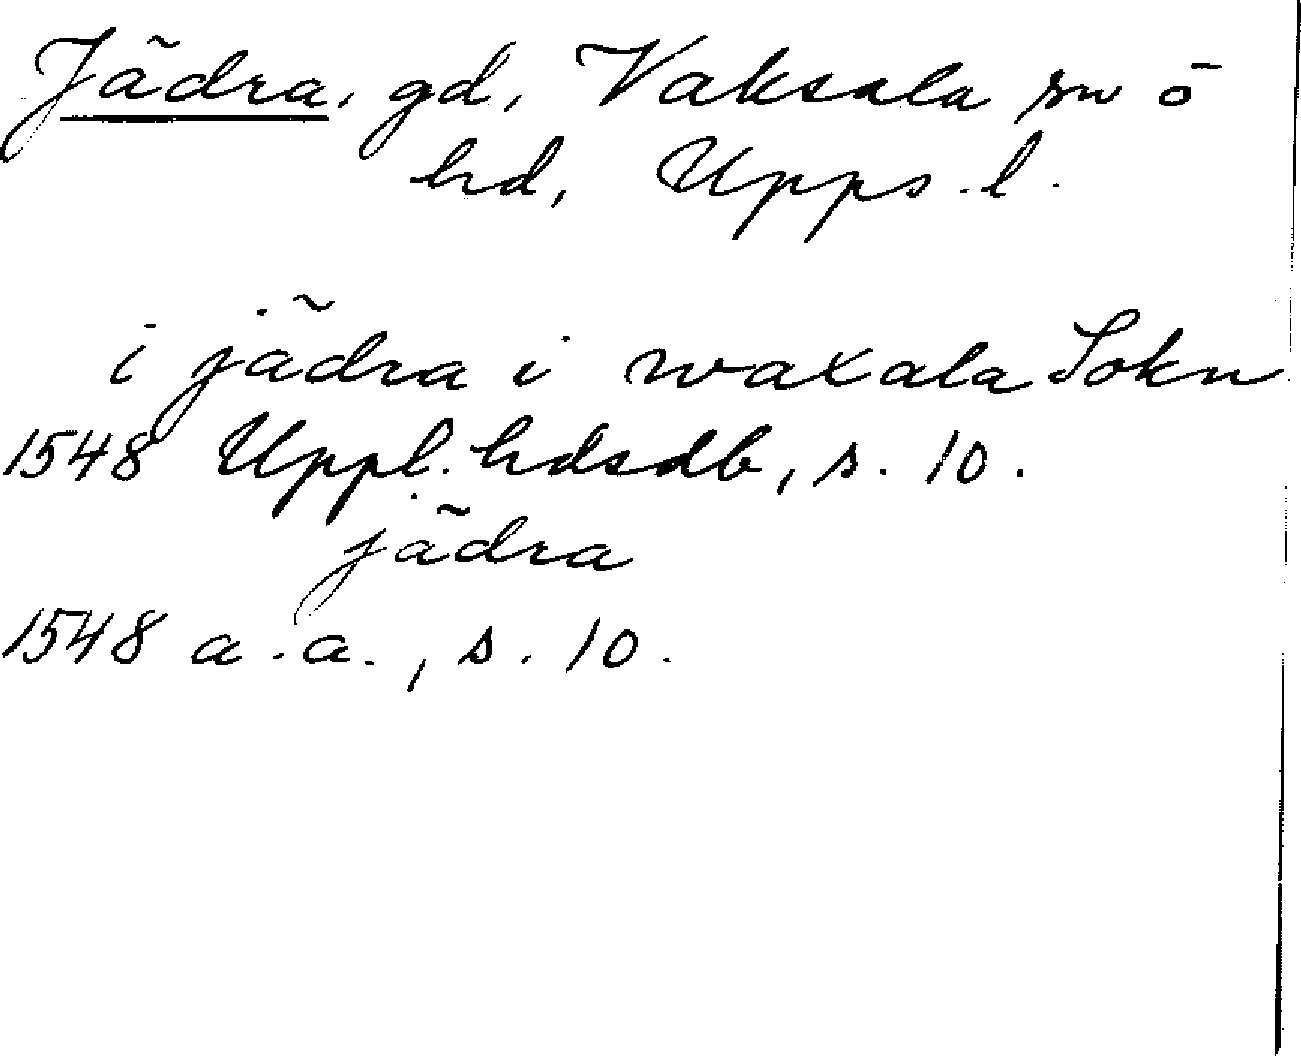 Jädra, gd, Vaksala sn ö
hd, Upps. l.
i jädra i waxala Sokn
1548 Uppl. hdsdb, s. 10.
jädra
1548 a.a., s. 10.